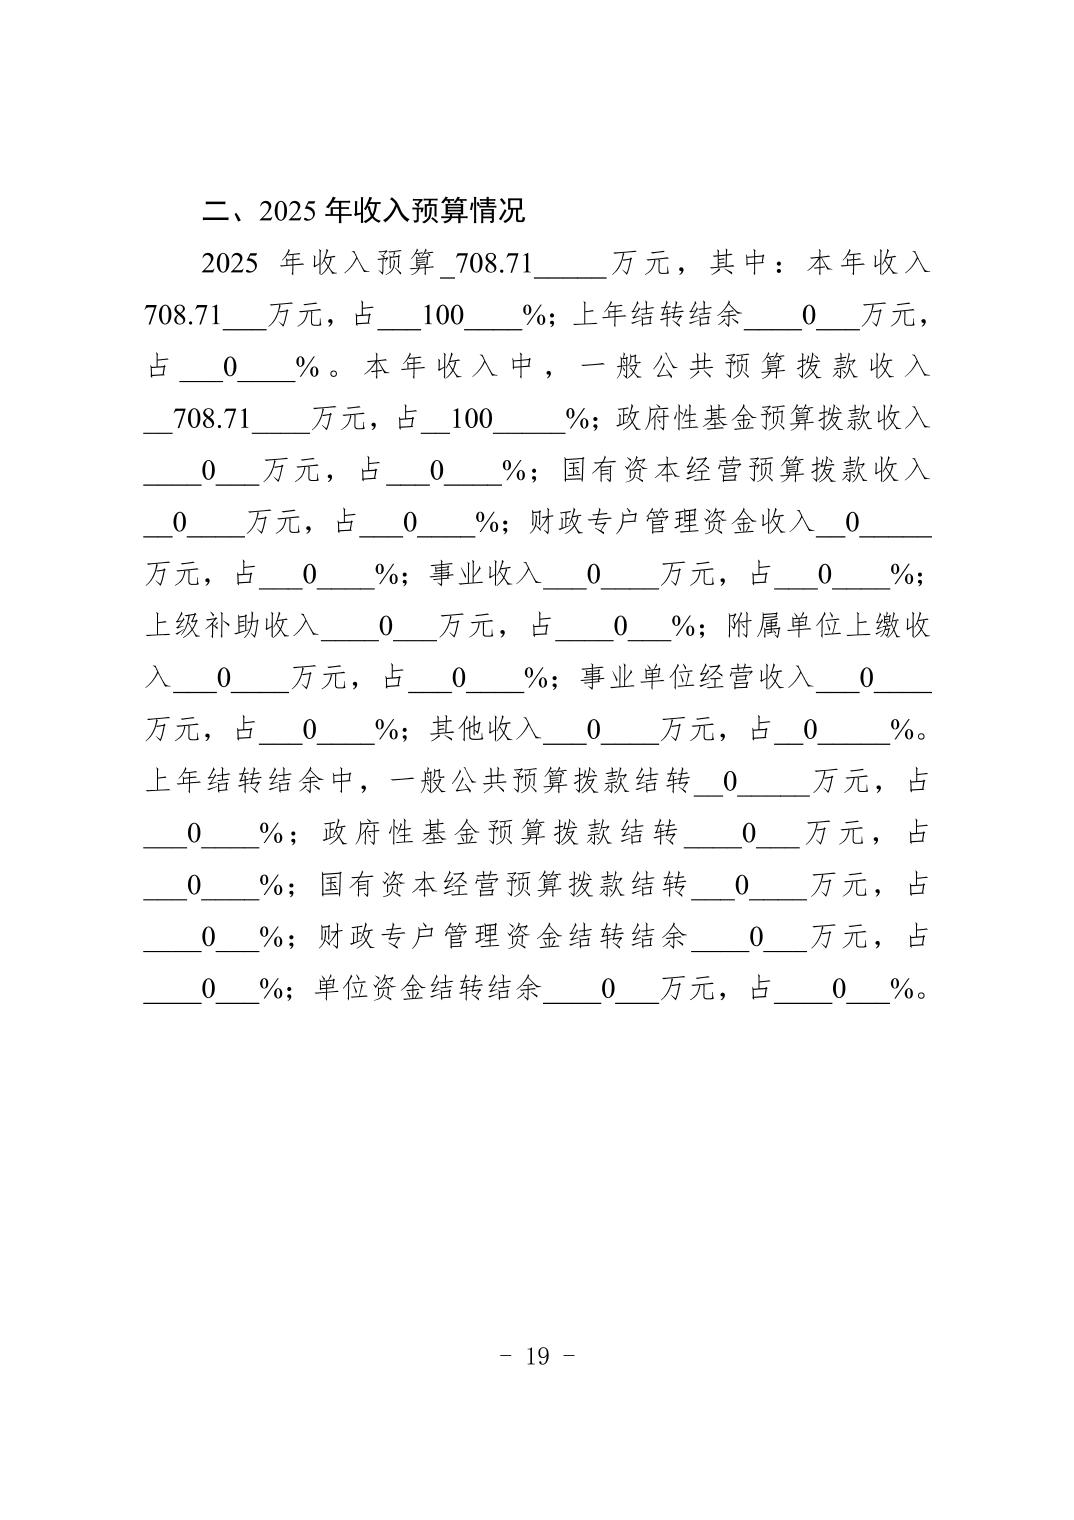 二、2025 年收入预算情况
2025 年收入预算_708.71_____万元，其中：本年收入
708.71___万元，占___100____%；上年结转结余____0___万元，
占___0____%。本年收入中，一般公共预算拨款收入
__708.71____万元，占__100_____%；政府性基金预算拨款收入
____0___万元，占___0____%；国有资本经营预算拨款收入
__0____万元，占___0____%；财政专户管理资金收入__0_____
万元，占___0____%；事业收入___0____万元，占___0____%；
上级补助收入____0___万元，占____0___%；附属单位上缴收
入___0____万元，占___0____%；事业单位经营收入___0____
万元，占___0____%；其他收入___0____万元，占__0_____%。
上年结转结余中，一般公共预算拨款结转__0_____万元，占
___0____%；政府性基金预算拨款结转____0___万元，占
___0____%；国有资本经营预算拨款结转___0____万元，占
____0___%；财政专户管理资金结转结余____0___万元，占
____0___%；单位资金结转结余____0___万元，占____0___%。
- 19 -